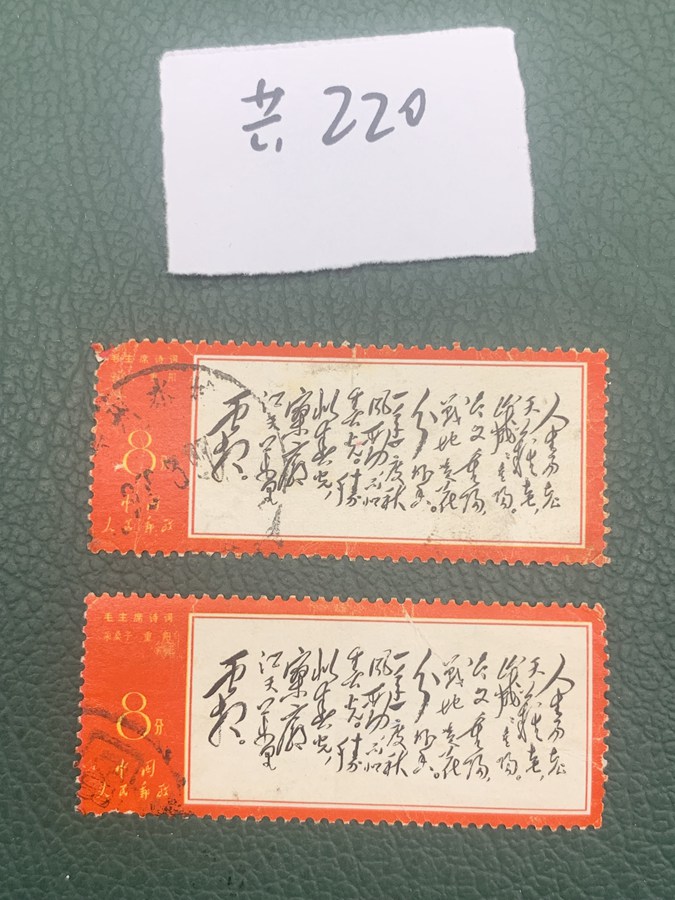 共220
毛主席诗词
8
中国
人民邮政
人生易老
天难老，
岁岁重阳。
今又重阳，
战地黄花
分外香。
一年一度秋
风劲，不似
春光。胜
似春光，
寥廓
江天万里
霜。
毛主席诗词
采桑子 重阳
8分
中国
人民邮政
人生易老
天难老，
岁岁重阳。
今又重阳，
战地黄花
分外香。
一年一度秋
风劲，不似
春光。胜
似春光，
寥廓
江天万里
霜。